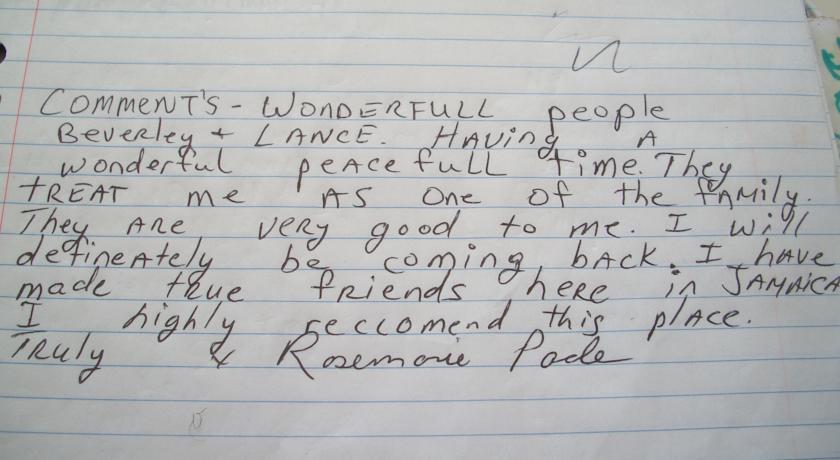 COMMENT'S - WONDERFULL people
Beverley + LANCE. HAVing A
wonderful peacefull time. They
TREAT me AS one of the family.
They ARE very good to me. I will
defineately be coming back. I have
made true friends here in JAMAICA
I highly reccomend this place.
Truly Rosemarie